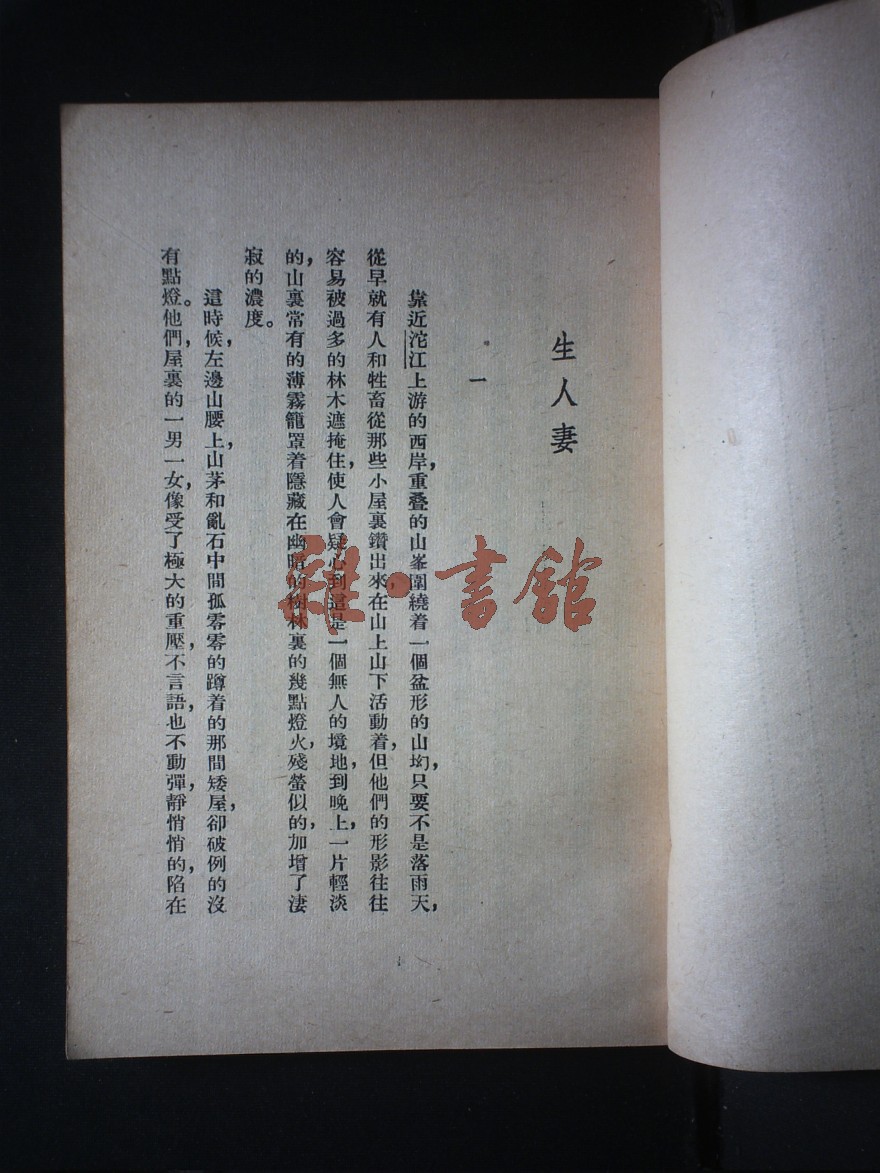 生人妻
一
靠近沱江上游的西岸，重叠的山峯圍繞着一個盆形的山㘭，只要不是落雨天，
從早就有人和牲畜從那些小屋裏鑽出來，在山上山下活動着，但他們的形影往往
容易被過多的林木遮掩住，使人會疑心到這是一個無人的境地，到晚上，一片輕淡
的，山裏常有的薄霧籠罩着隱藏在幽暗的樹林裏的幾點燈火，殘螢似的，加增了淒
寂的濃度。
這時候，左邊山腰上，山茅和亂石中間孤零零的蹲着的那間矮屋，卻破例的沒
有點燈。他們，屋裏的一男一女，像受了極大的重壓，不言語，也不動彈，靜悄悄的，陷在
雜·書館